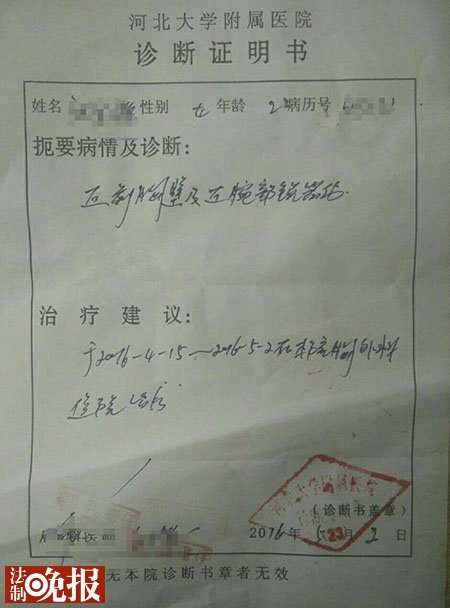 河北大学附属医院
诊断证明书
姓名 性别 女 年龄 2 病历号
扼要病情及诊断：
右前胸壁及右腕部锐器伤.
治疗建议：
于2016-4-15～2016-5-2在本院胸外科
住院治疗
（诊断书盖章）
科医 2016年5月2日
无本院诊断书章者无效
河北大学附属医院
法制晚报